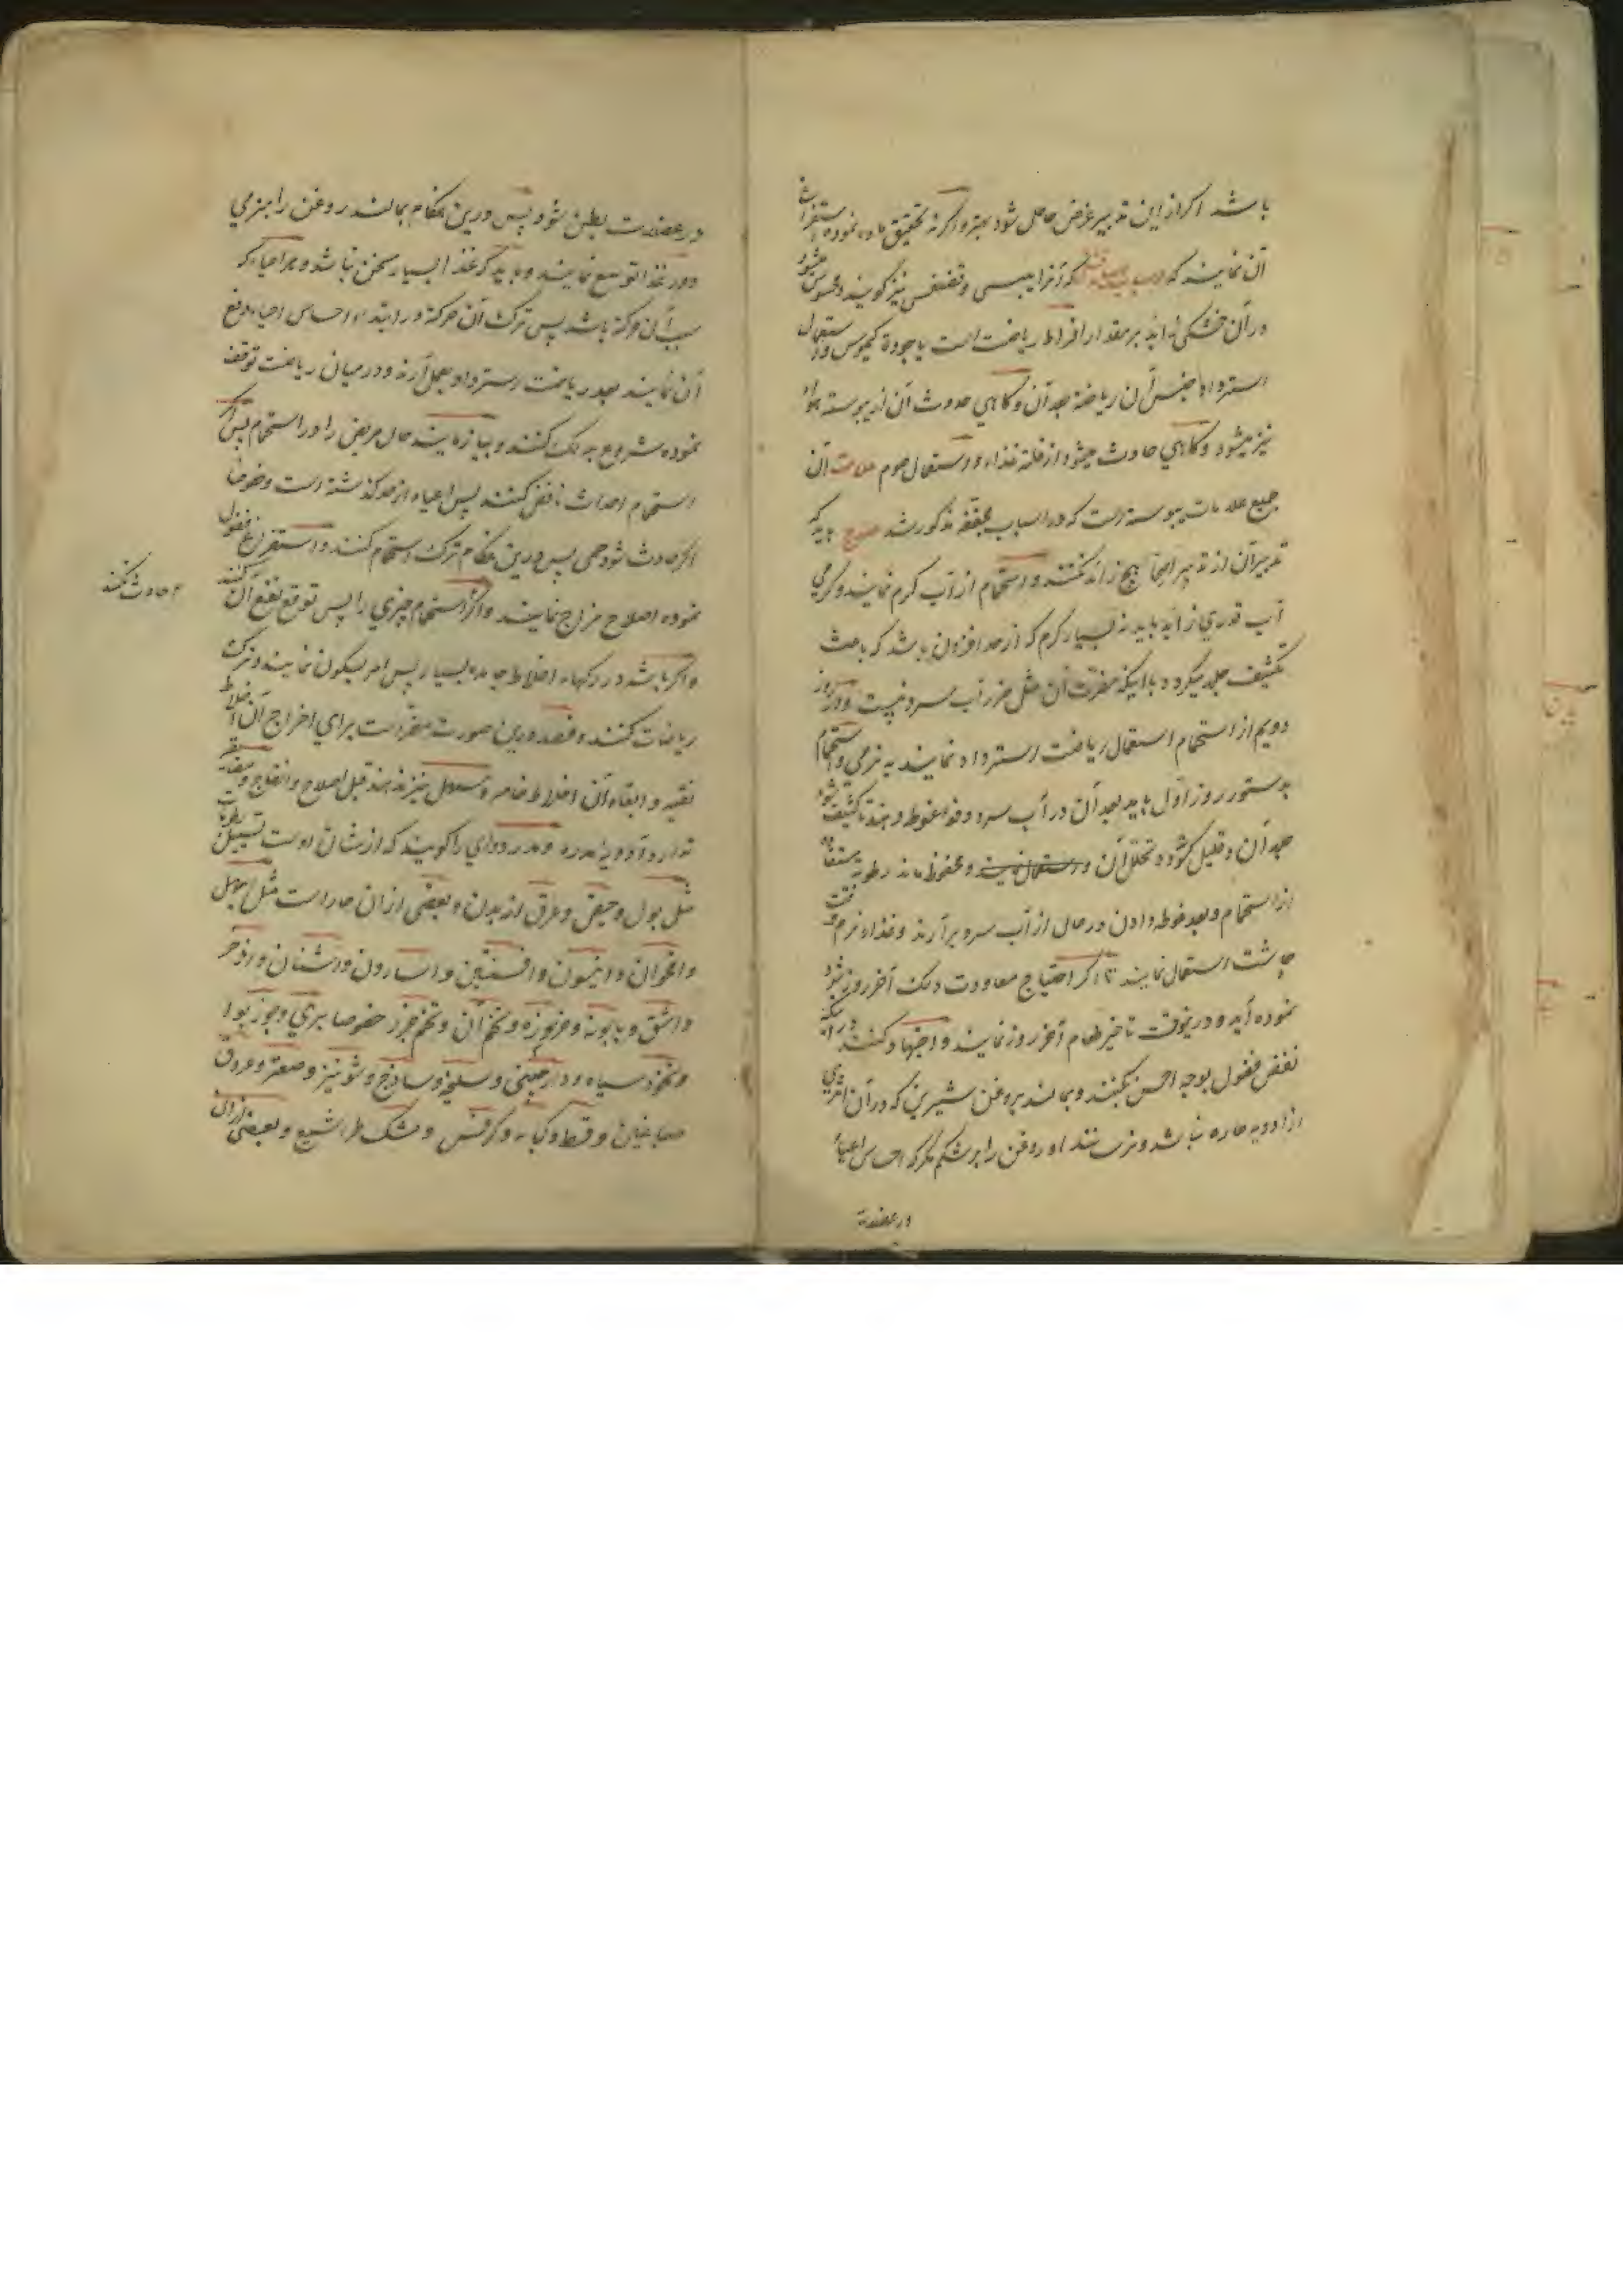 باشد اکر ازین تدبیر غرض حاصل شود بهتر و اکرنه تحقیق ماده نموده استفراغ
آن نمایند که آنرا یبسی و تقشفی نیز کویند و محسوس میشود
در آن خشکی زاید بر مقدار افراط ریاضت است یا جودة کیموس و استعمال
استرداد حبس آن ریاضة بعد آن و کاهی حدوث آن از یبوسته هواء
نیز میشود و کاهی حادث میشود از قلة غذاء و استعمال صوم علامت آن
جمیع علامات یبوسته است که در اسباب مجففه مذکور شد علاج باید که
تدبیر آن از تدبیر اصحا هیچ زائد نکنند و استحمام از آب کرم نمایند و کرمی
آب قدری زاید باید نه بسیار کرم که از حد افزون باشد که باعث
تکثیف جلد میکردد با اینکه مضرت آن مثل ضرر آب سرد نیست و در روز
دویم از استحمام استعمال ریاضت استرداد نمایند به نرمی و استحمام
بدستور روز اول باید بعد آن در آب سرد دفعة غوطه دهند تا کثیف شود
جلد آن و قلیل شود تحلل آن و محفوظ ماند رطوبة مستفاده
از استحمام و بعد غوطه دادن در حال از آب سرد برآرند و غذاء نرم وقت
چاشت استعمال نمایند تا اکر احتیاج معاودت دلک آخر روز شود
نموده آید و درینوقت تاخیر طعام آخر روز نمایند و اجتهاد کنند در اینکه
نفض فضول بوجه احسن بکنند و بمالند بروغن شیرین که در آن اثری
از ادویه حاره نباشد و نرسانند او روغن را بر شکم مکر که احساس اعیا
در عضلة
در عضلات بطن شود پس درین هنکام بمالند روغن را بنرمی
و در غذا توسیع نمایند و باید که غذا بسیار سخن نباشد و هر اعیاء که
سبب آن حرکة باشد پس ترک آن حرکة در ابتداء احساس اعیاء دفع
آن نمایند بعد ریاضت استرداد بعمل آرند و در میان ریاضت توقف
نموده شروع به دلک کنند و بیازمایند حال مریض را در استحمام پس اکر
استحمام احداث نافض کنند پس اعیاء از حد کذشته است و خصوصا
اکر حادث شود حمی پس درین هنکام ترک استحمام کنند و استفراغ فضول
نموده اصلاح مزاج نمایند و اکر استحمام چیزی را پس توقع نفع آن کنند
حادث نکند
و اکر باشد در رکها اخلاط خام بسیار پس امر بسکون نمایند و ترک
ریاضات کنند و فصد درین صورت مضر است برای اخراج آن اخلاط
نقیه و ابقاء آن اخلاط خامه و مسهل نیز ندهند قبل اصلاح و انضاج
ادویه مدره و مدر دوای را کویند که از شان اوست تسییل رطوبات
مثل بول و حیض و عرق از بدن و بعضی از آن حار است مثل ابهل
و اقحوان و انیسون و افسنتین و اسارون و اشنان و اذخر
و اشق و بابونه و خربوزه و تخم آن و تخم جزر خصوصا بری و جوز بوا
و نخود سیاه و دارچینی و سلیخه و ساذج و شونیز و صعتر و عروق
صباغین و قسط و کبابه و کرفس و مشک طرامشیع و بعضی ازان